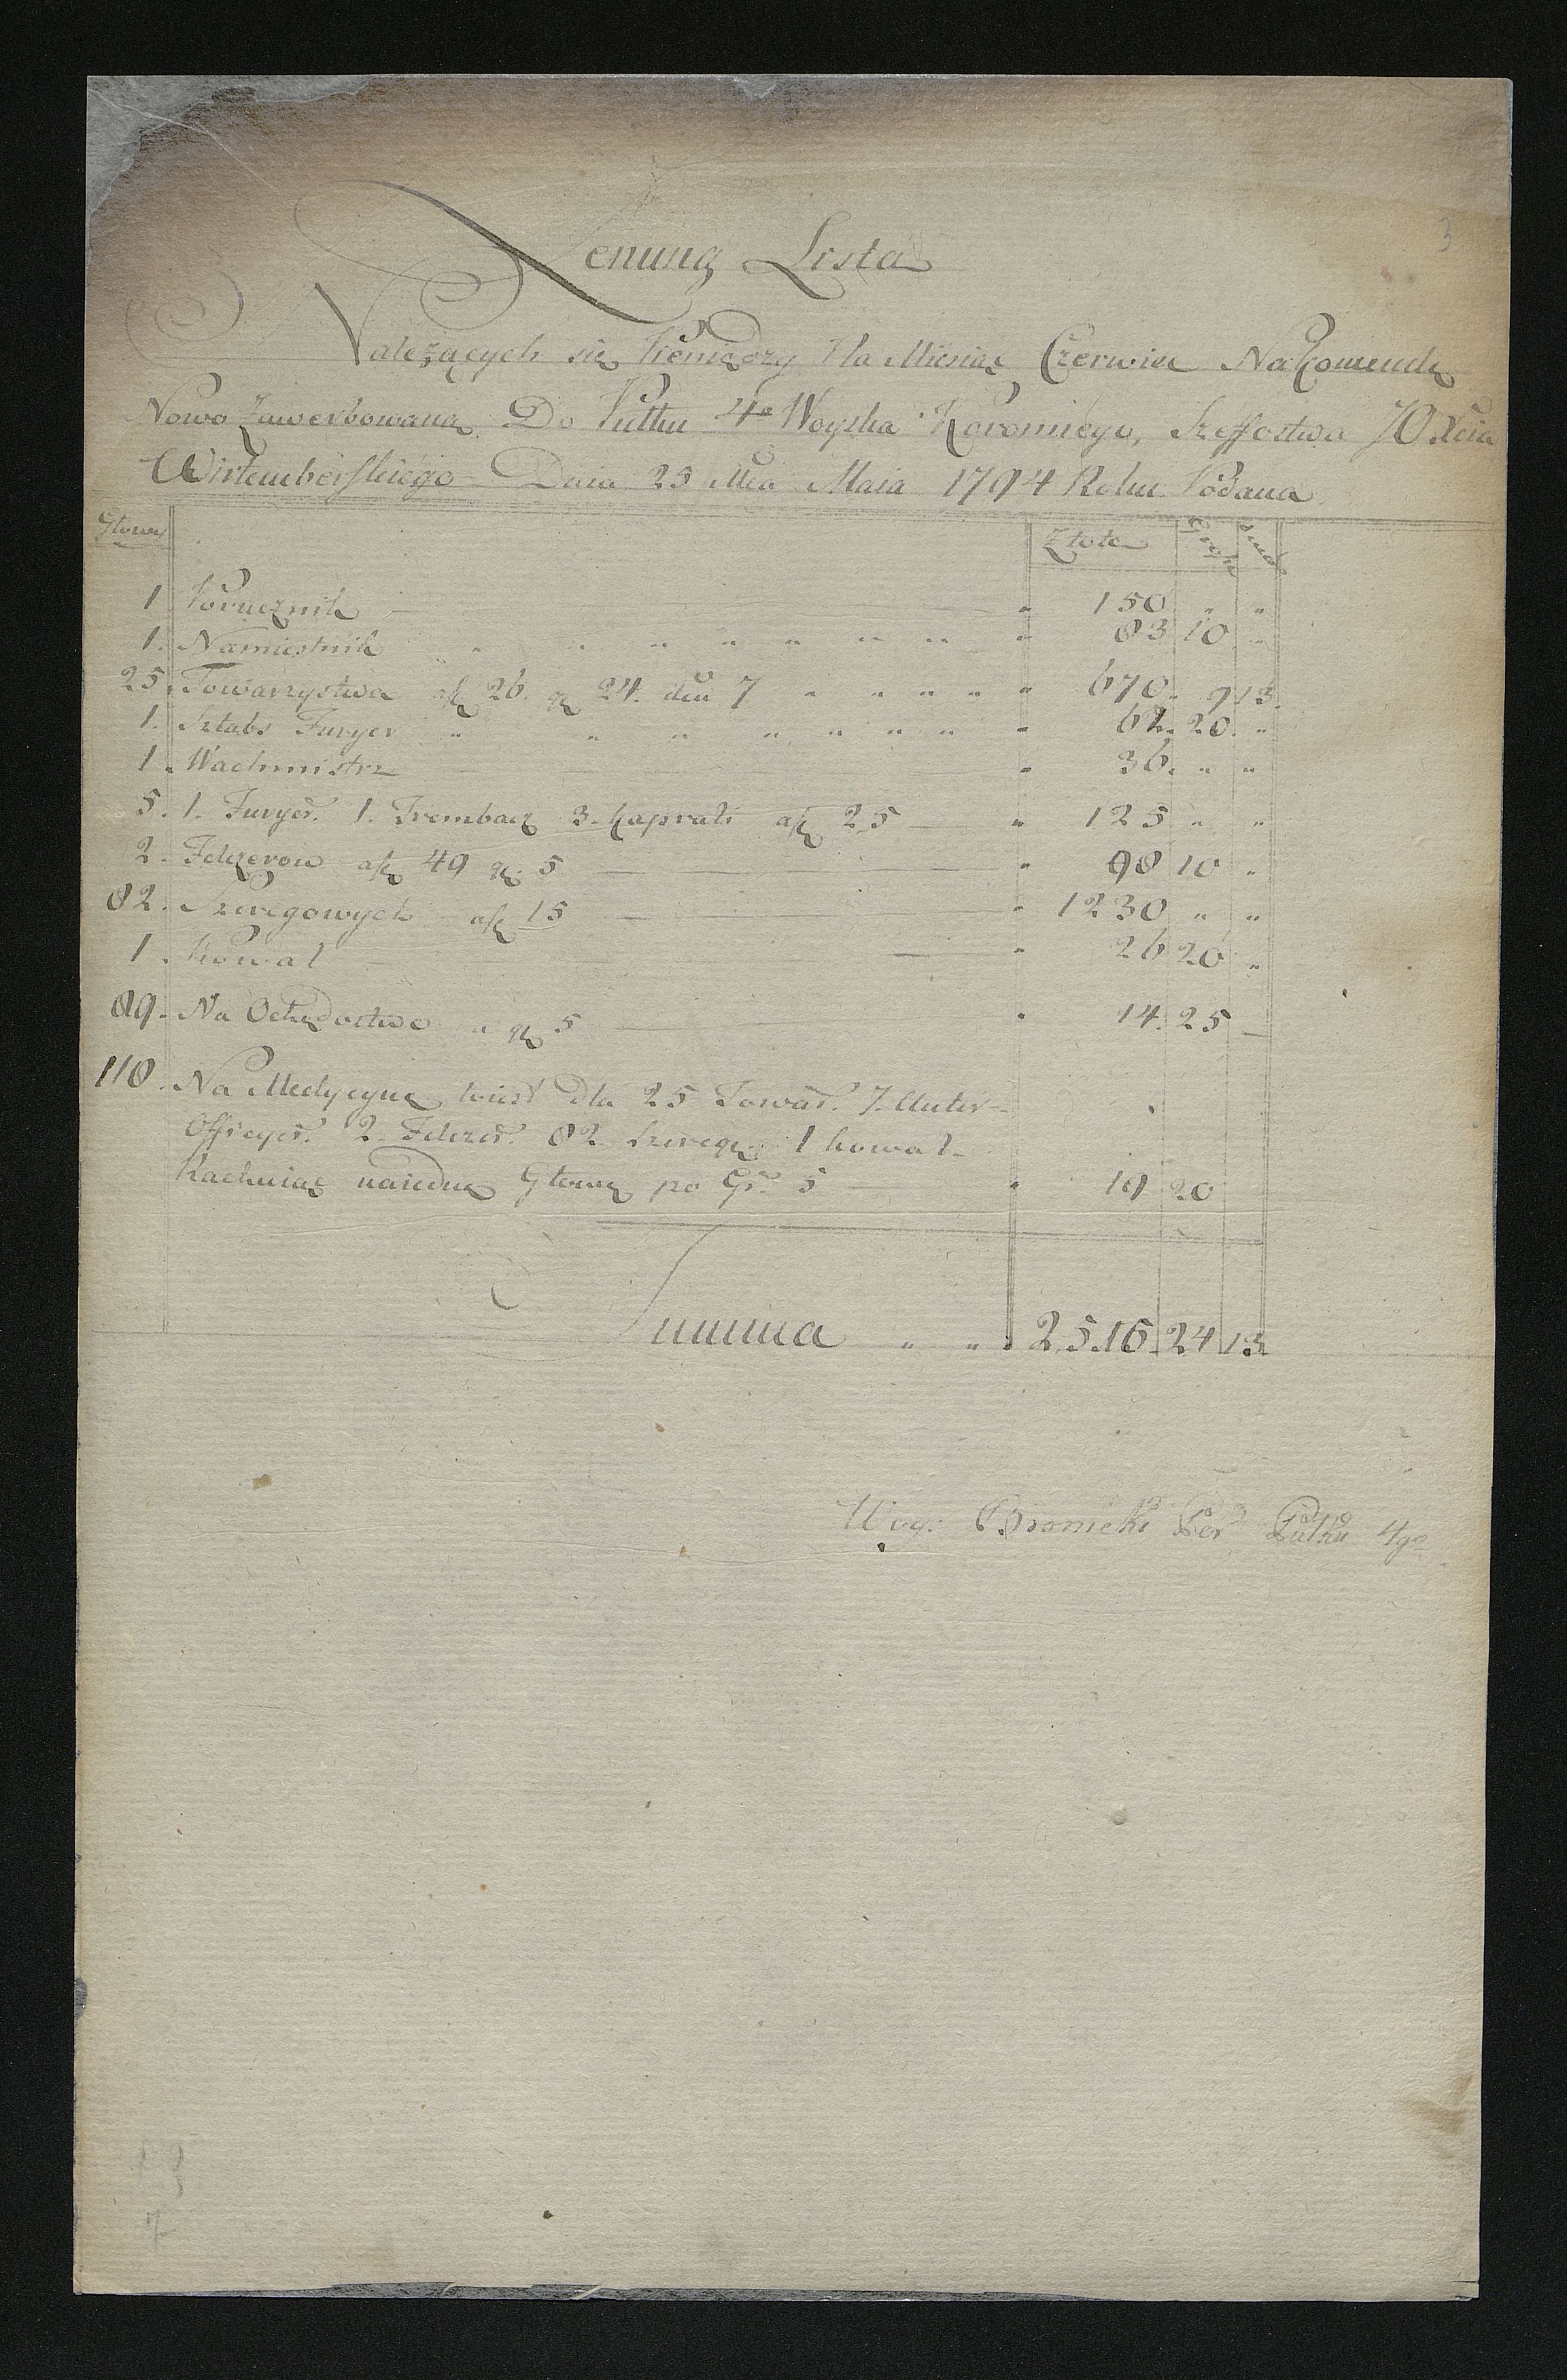 Lenung Lista
Należących się Pieniędzy Dla Miesiąc Czerwiec Na Komendę
Nowo Zawerbowaną Do Pułku 4o Woyska Koronnego, Szeffostwa JO Xcia
Wirtemberskiego Dnia 25 Mca Maia 1794 Roku Podana
Głowy Złote Grosze
1 Porucznik " 150 " "
1. Namiestnik " 83 10 "
25. Towarzystwa afl 26. gr 24. den 7 " 670. 9 13.
1. Sztabs Furyer " 62. 20. "
1. Wachmistrz " 36. " "
5. 1. Furyer. 1. Trembacz 3. Kaprali afl 25 " 125 " "
2. Felczerow afl 49 gr 5 " 98 10 "
82. Szeregowych afl 15 " 1230 " "
1. Kowal " 26 20 "
89. Na Ochędostwo a gr 5 " 14. 25
118. Na Medycynę toiest Dla 25 Towar. 7. Unter
Officyer. 2. Felczer. 82. Szereg. 1 Kowal
Rachuiąc naiednę Głowę po Gr. 5 " 19 20
Summa " " 2516 24 13
Branicki Por Pułku 4go